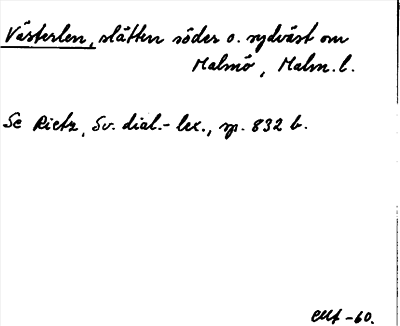 Västerlen, slätten söder o. sydväst om
Malmö, Malm. l.
Se Rietz, Sv. dial.-lex., sp. 832 b.
-60.